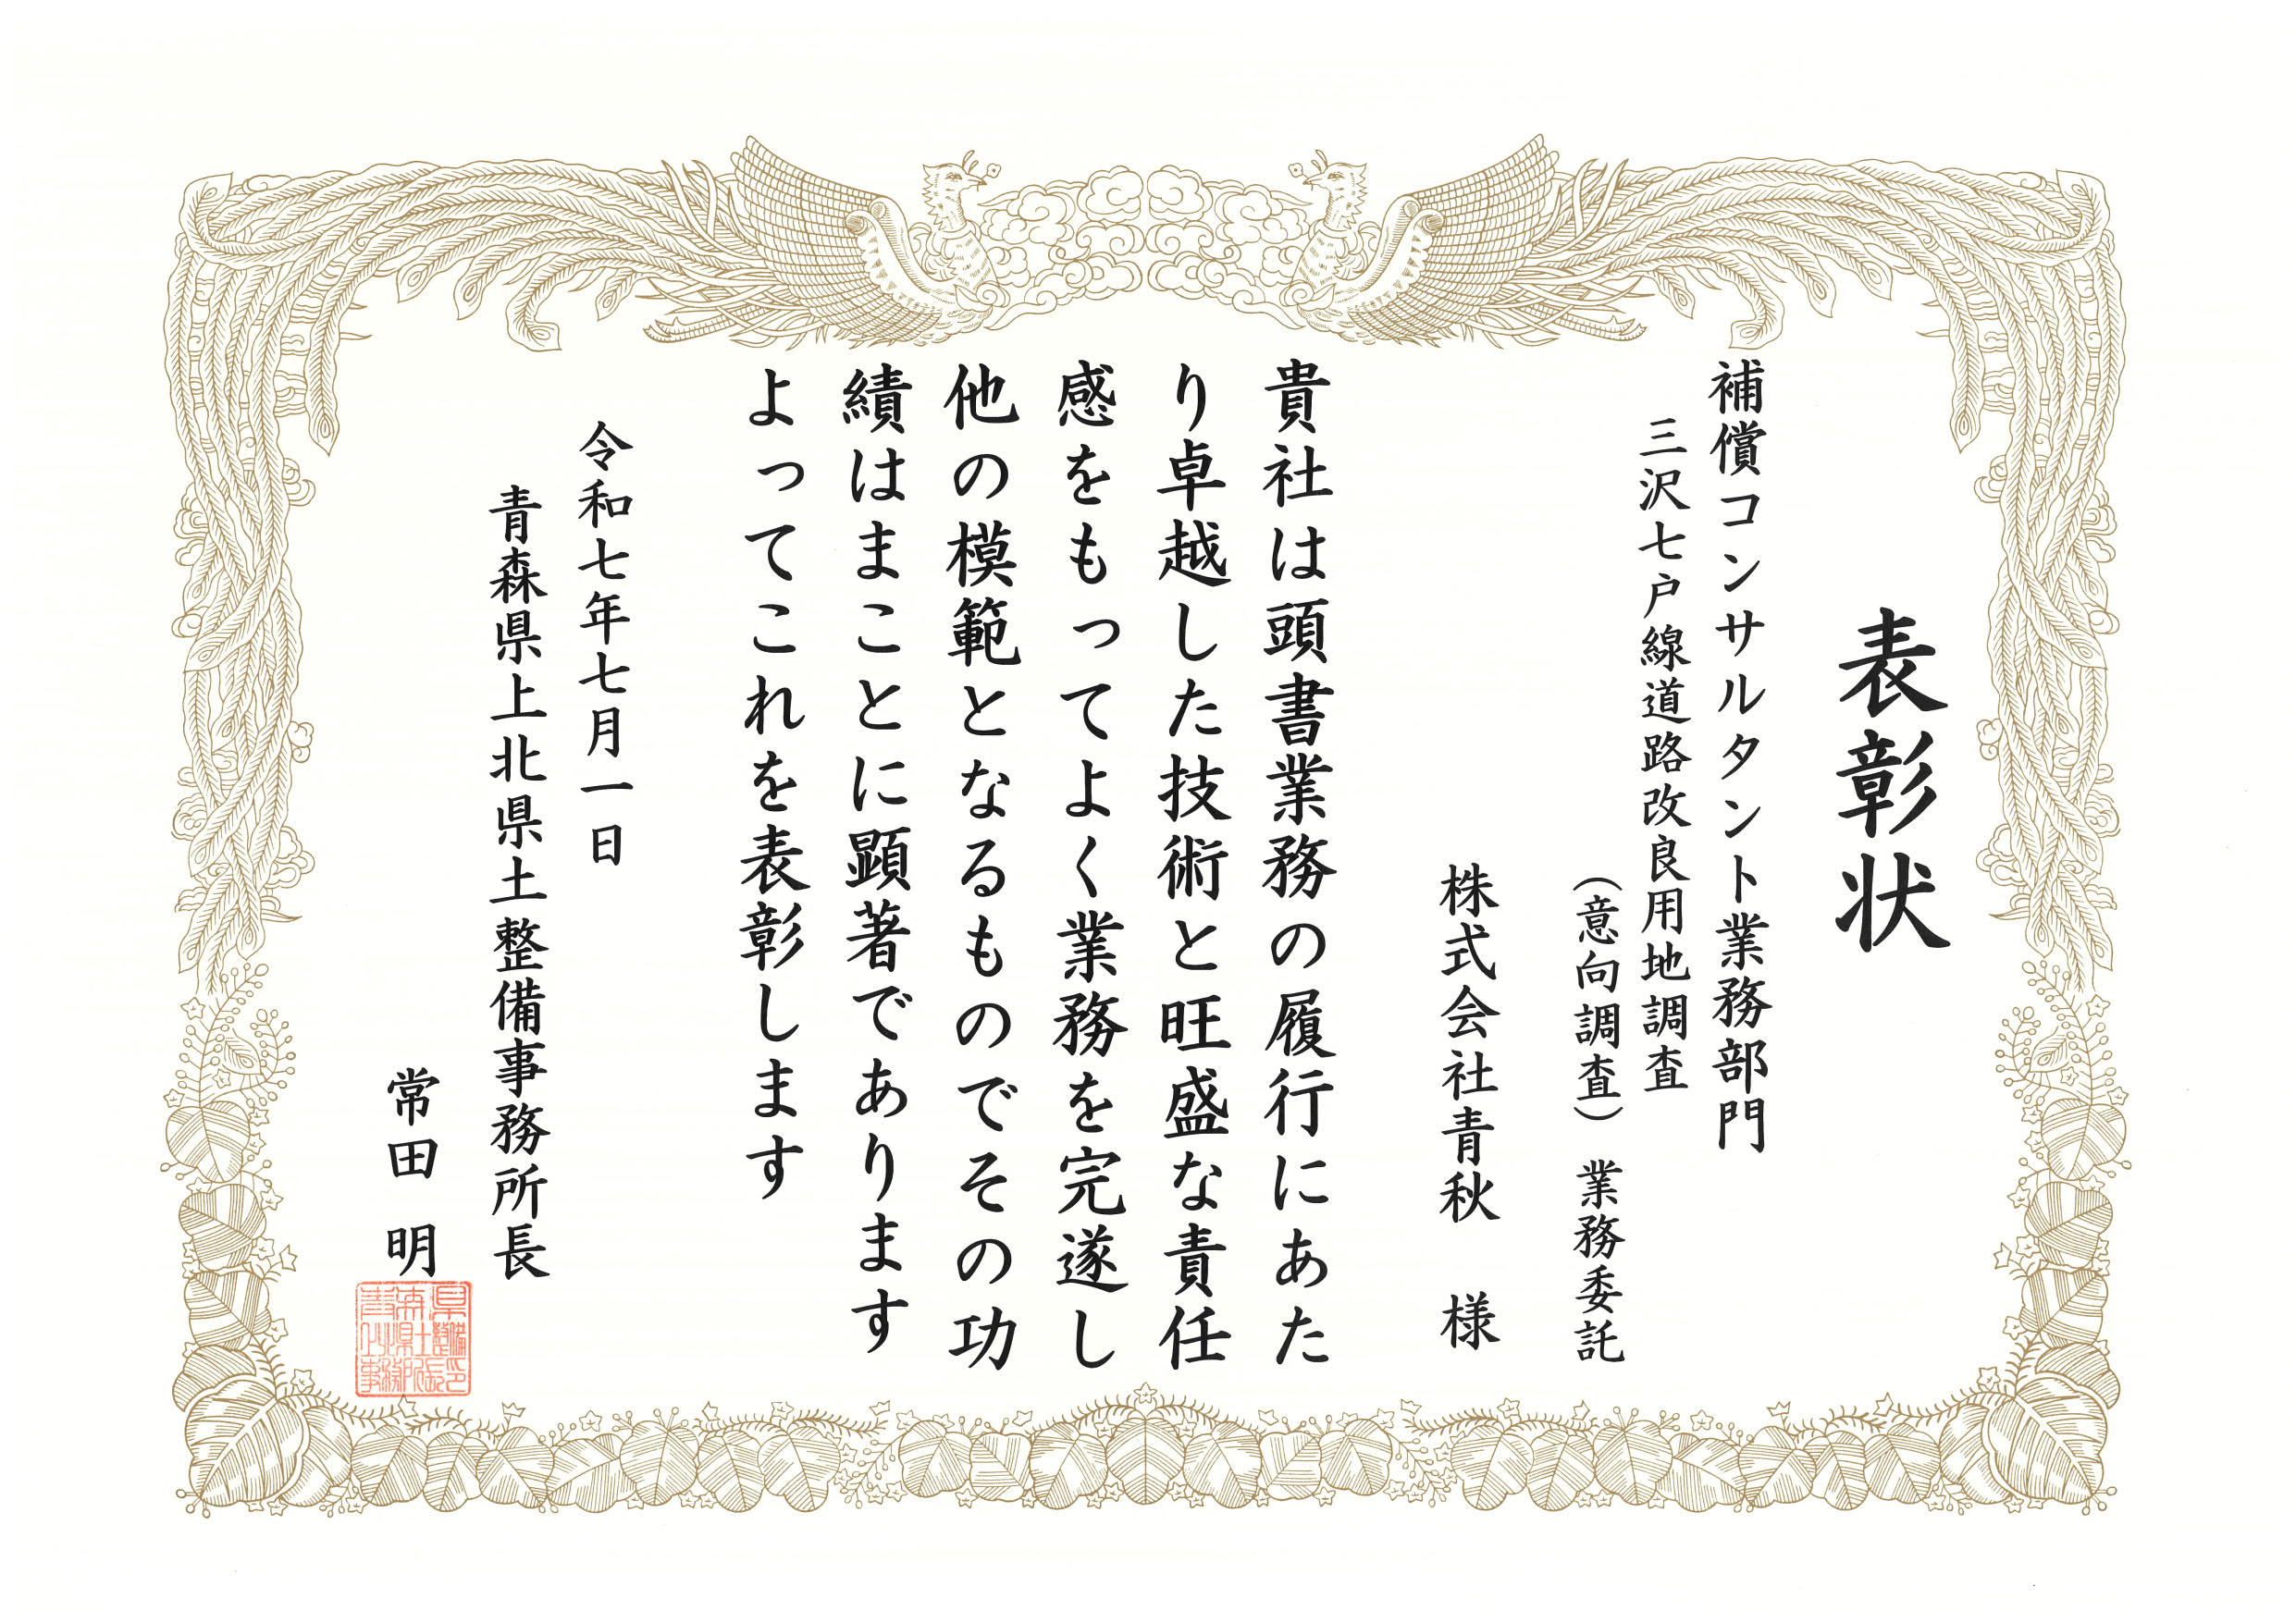 表彰状
補償コンサルタント業務部門
三沢七戸線道路改良用地調査
（意向調査）業務委託
株式会社青秋　様
貴社は頭書業務の履行にあた
り卓越した技術と旺盛な責任
感をもってよく業務を完遂し
他の模範となるものでその功
績はまことに顕著であります
よってこれを表彰します
令和七年七月一日
青森県上北県土整備事務所長
常田　明